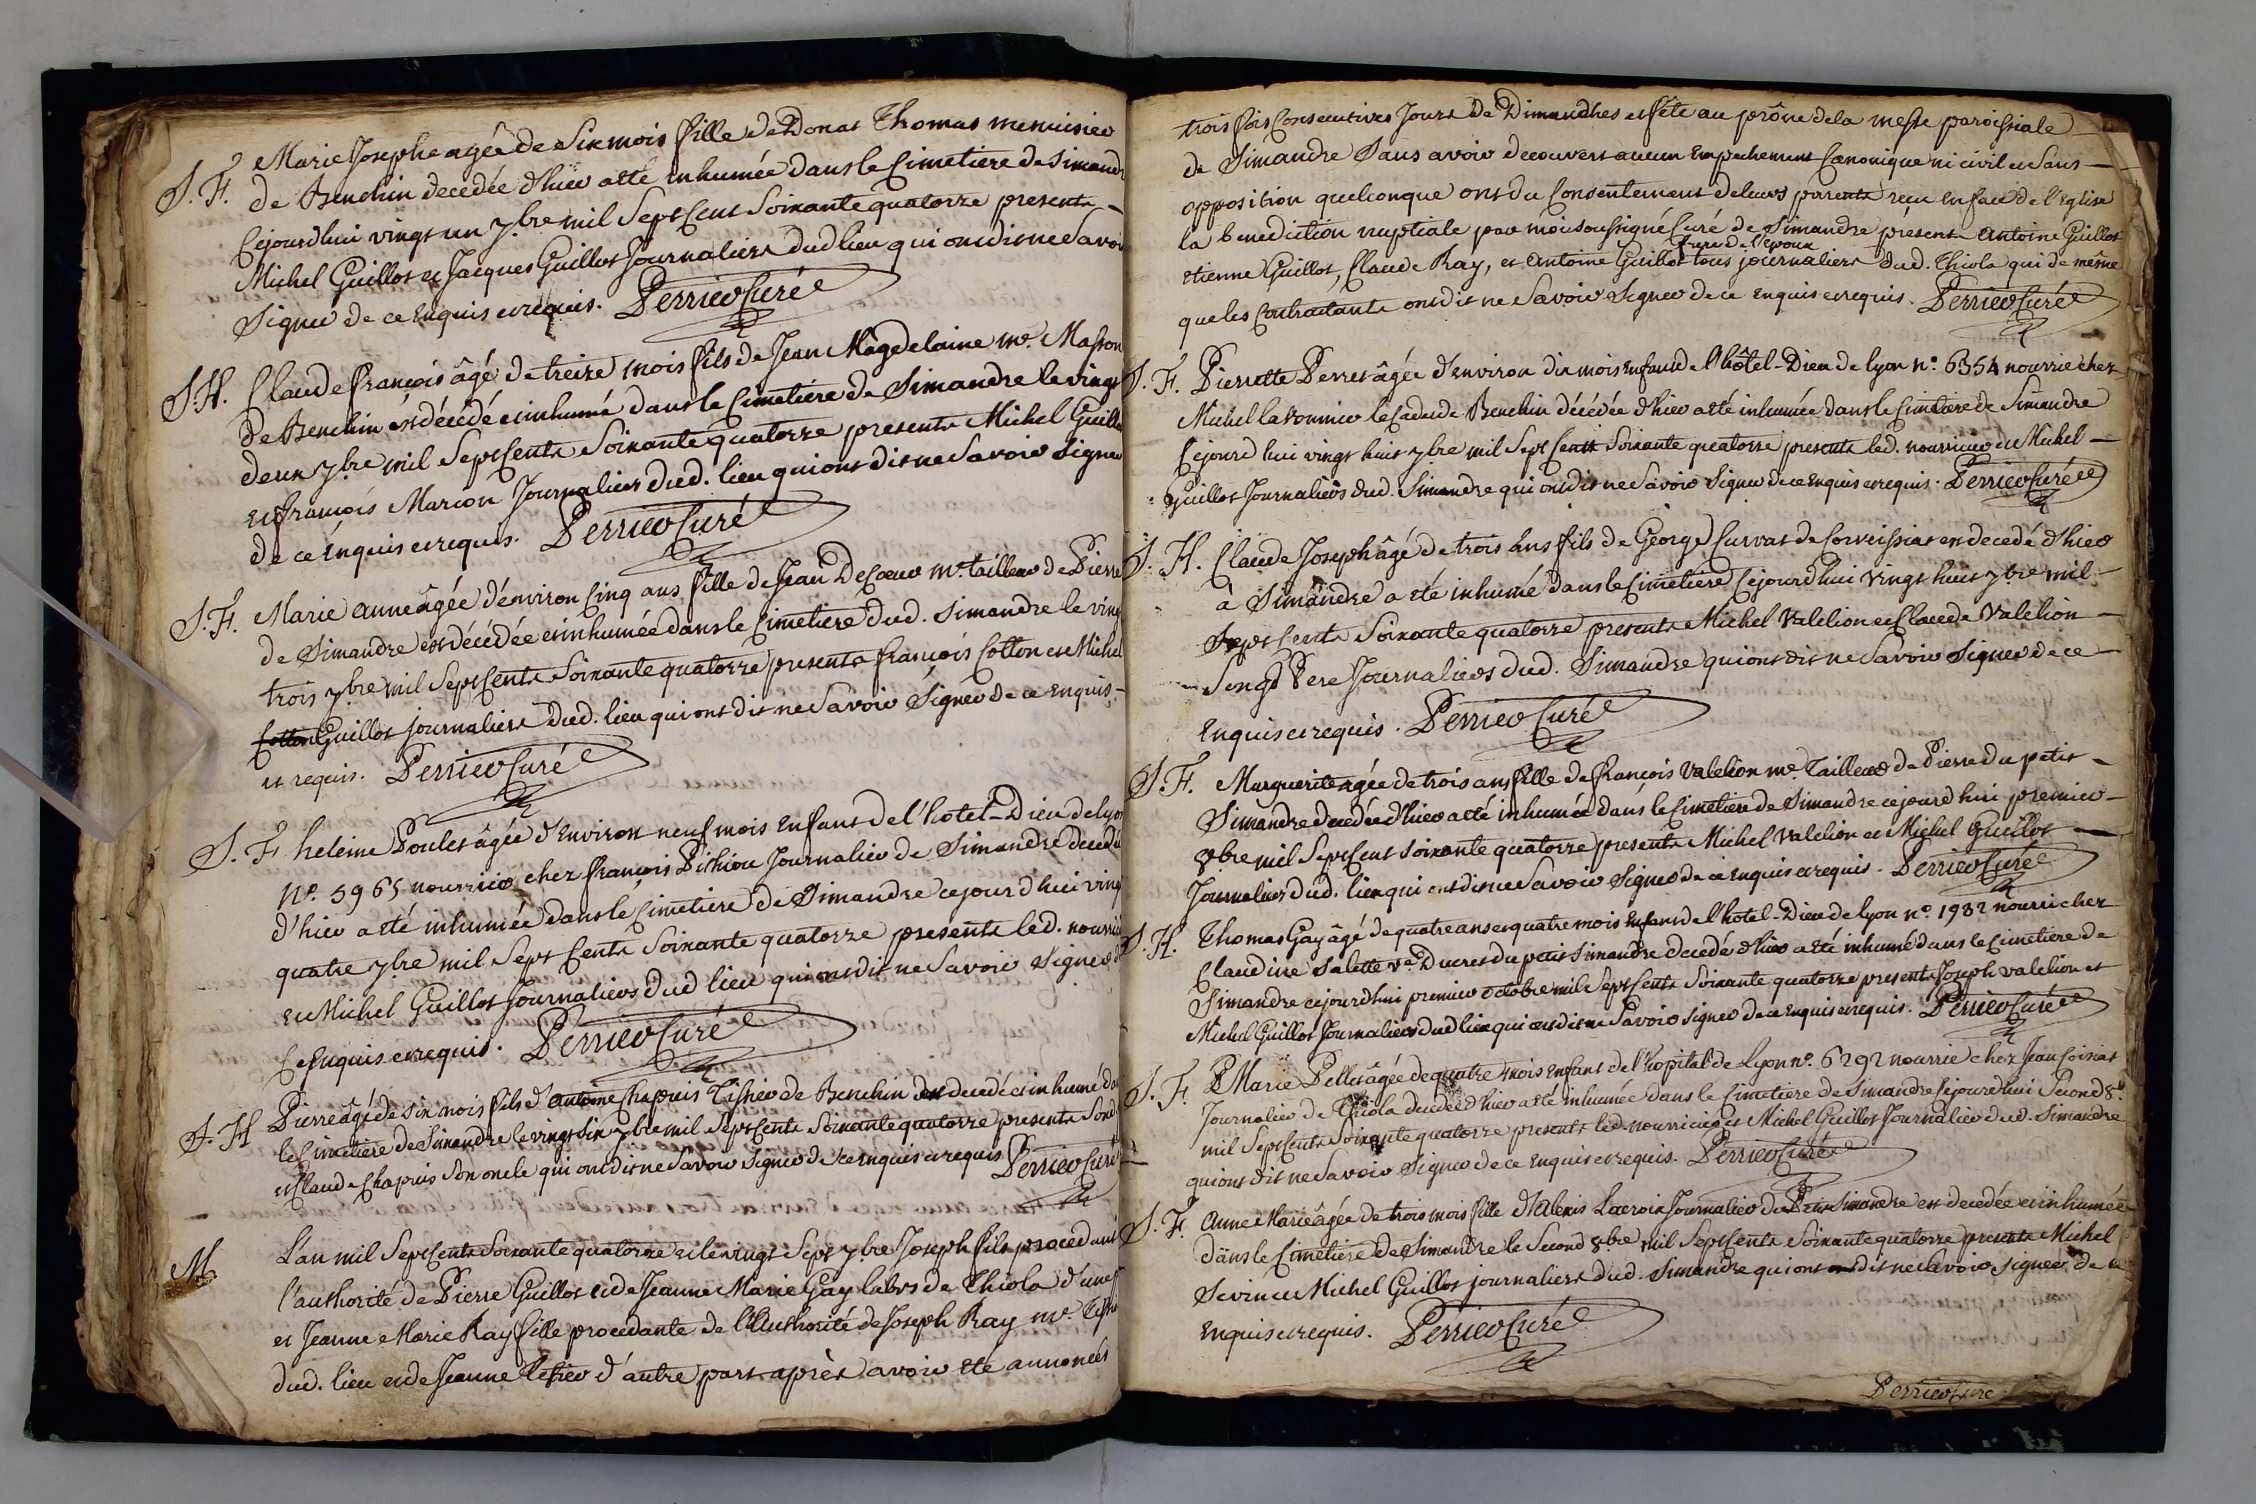 S. F. Marie Josephe agée de Six mois fille de Donat Thomas menuisier
de Benchin decedée d'hier a eté inhumée dans le Cimetiere de Simandr
Cejourdhui vingt un 7.bre mil Sept Cent Soixante quatorze presents
Michel Guillot et Jacques Guillot Journaliers dud lieu qui ont dit ne Savoir
Signer de ce Enquis et requis. Perrier Curé
S. H. Claude françois âgé de treize mois fils de Jean Magdelaine me. Masson
de Benchin est décédé et inhumé dans le Cimetiere de Simandre le vingt
deux 7bre mil Sept Cents Soixante quatorze presents Michel Guillo
et françois Marion Journaliers dud. lieu qui ont dit ne Savoir Signer
de ce Enquis et requis. Perrier Curé
S. F. Marie anne âgée d'environ Cinq ans fille de Jean Decoeur me. tailleur de Pierre
de Simandre est décédée et inhumée dans le Cimetiere dud. Simandre le ving
trois 7.bre mil Sept Cents Soixante quatorze presents françois Cotton et Michel
Cotton Guillot journaliers Dud. lieu qui ont dit ne Savoir Signer de ce Enquis
et requis. Perrier Curé
S. F heleine Poulet âgée d'Environ neuf mois Enfant de l'hotel-Dieu de lyon
No. 5965 nourrie chez françois Pithiou Journalier de Simandre decedée
d'hier a eté inhumée dans le Cimetiere de Simandre cejourd'hui vingt
quatre 7bre mil Sept Cents Soixante quatorze presents led. nourricier
et Michel Guillot Journaliers dud lieu qui ont dit ne Savoir Signer d
Ce Enquis et requis. Perrier Curé
S. H Pierre âgé de Six mois fils d'antoine Chapuis Tissier de Benchin est decedé et inhumé da
le Cimetiere de Simandre le vingt Six 7bre mil Sept Cents Soixante quatorze presents Sond
et Claude Chapuis Son oncle qui ont dit ne Savoir Signer de ce enquis et requis Perrier Curé
M L'an mil Sept Cents Soixante quatorze et le vingt Sept 7bre Joseph fils procedant
l'authorité de Pierre Guillot et de Jeanne Marie Gay labrs de Thiola d'une p
et Jeanne Marie Ray fille procedante de l'Authorité de Joseph Ray me. Tissie
dud. lieu et de Jeanne d'autre part après avoir eté annoncés
trois fois Consecutives Jours De Dimandhes et fête au prône de la messe paroissiale
de Simandre Sans avoir decouvert aucun Empechement Canonique ni civil et Sans
opposition quelconque ont du Consentement de leurs parents reçu en face de l'Eglise
la benediction nuptiale par moi soussigné Curé de Simandre présents antoine Guillot
frere de l'epoux
etienne Guillot, Claude Ray, et antoine Guillot tous journaliers dud. Thiola qui de même
que les Contractants ont dit ne Savoir Signer de ce Enquis et requis. Perrier Curé
S. F. Pierrette Perret âgée d'environ dix mois Enfant de l'hôtel-Dieu de lyon no. 6354 nourrie chez
Michel la vonnier le Cadet de Benchin décédée d'hier a eté inhumée dans le Cimetiere de Simandre
Cejourd'hui vingt huit 7bre mil Sept Cents Soixante quatorze presents led. nourricier et Michel
Guillot Journaliers dud. Simandre qui ont dit ne Savoir Signer de ce Enquis et requis. Perrier Curé
S. H. Claude Joseph âgé de trois ans fils de George Curvat de Corveissiat est decedé d'hier
à Simandre a eté inhumé dans le Cimetiere Cejourd'hui vingt huit 7bre mil
Sept Cents Soixante quatorze presents Michel Valelion et Claude Valelion
Son gd Pere Journaliers dud. Simandre qui ont dit ne Savoir Signer de ce
Enquis et requis. Perrier Curé
S. F. Marguerite agée de trois ans fille de françois Valelion me. Tailleur de Pierre du petit
Simandre decedée d'hier a eté inhumée dans le Cimetiere de Simandre cejourd'hui premier
8bre mil Sept Cent Soixante quatorze presents Michel Valelion et Michel Guillot
Journaliers dud. lieu qui ont dit ne Savoir Signer de ce Enquis et requis. Perrier Curé
S. H. Thomas Gay âgé de quatre ans et quatre mois Enfant de l'hotel-Dieu de lyon no. 1982 nourri chez
Claudine Salette ve. Ducret du petit Simandre decedé d'hier a eté inhumé dans le Cimetiere de
Simandre cejourd'hui premier octobre mil Sept Cents Soixante quatorze presents Joseph valelion et
Michel Guillot Journaliers dud lieu qui ont dit ne Savoir Signer de ce Enquis et requis. Perrier Curé
S. F. Marie Pellet âgée de quatre mois Enfant de l'hopital de Lyon no. 6292 nourrie chez Jean Coissiat
Journalier de Thiola decedée d'hier a eté inhumée dans le Cimetiere de Simandre Cejourd'hui Second 8.b
mil Sept Cents Soixante quatorze presents led. nourricier et Michel Guillot Journalier dud. Simandre
qui ont dit ne Savoir Signer de ce Enquis et requis. Perrier Curé
S. F. Anne Marie âgée de trois mois fille d'Alexis Lacroix Journalier du Petit Simandre est decedée et inhumée
dans le Cimetiere de Simandre le Second 8.bre mil Sept Cents Soixante quatorze presents Michel
Sevin et Michel Guillot journaliers dud. Simandre qui ont dit ne Savoir Signer de ce
Enquis et requis. Perrier Curé
Perrier Curé